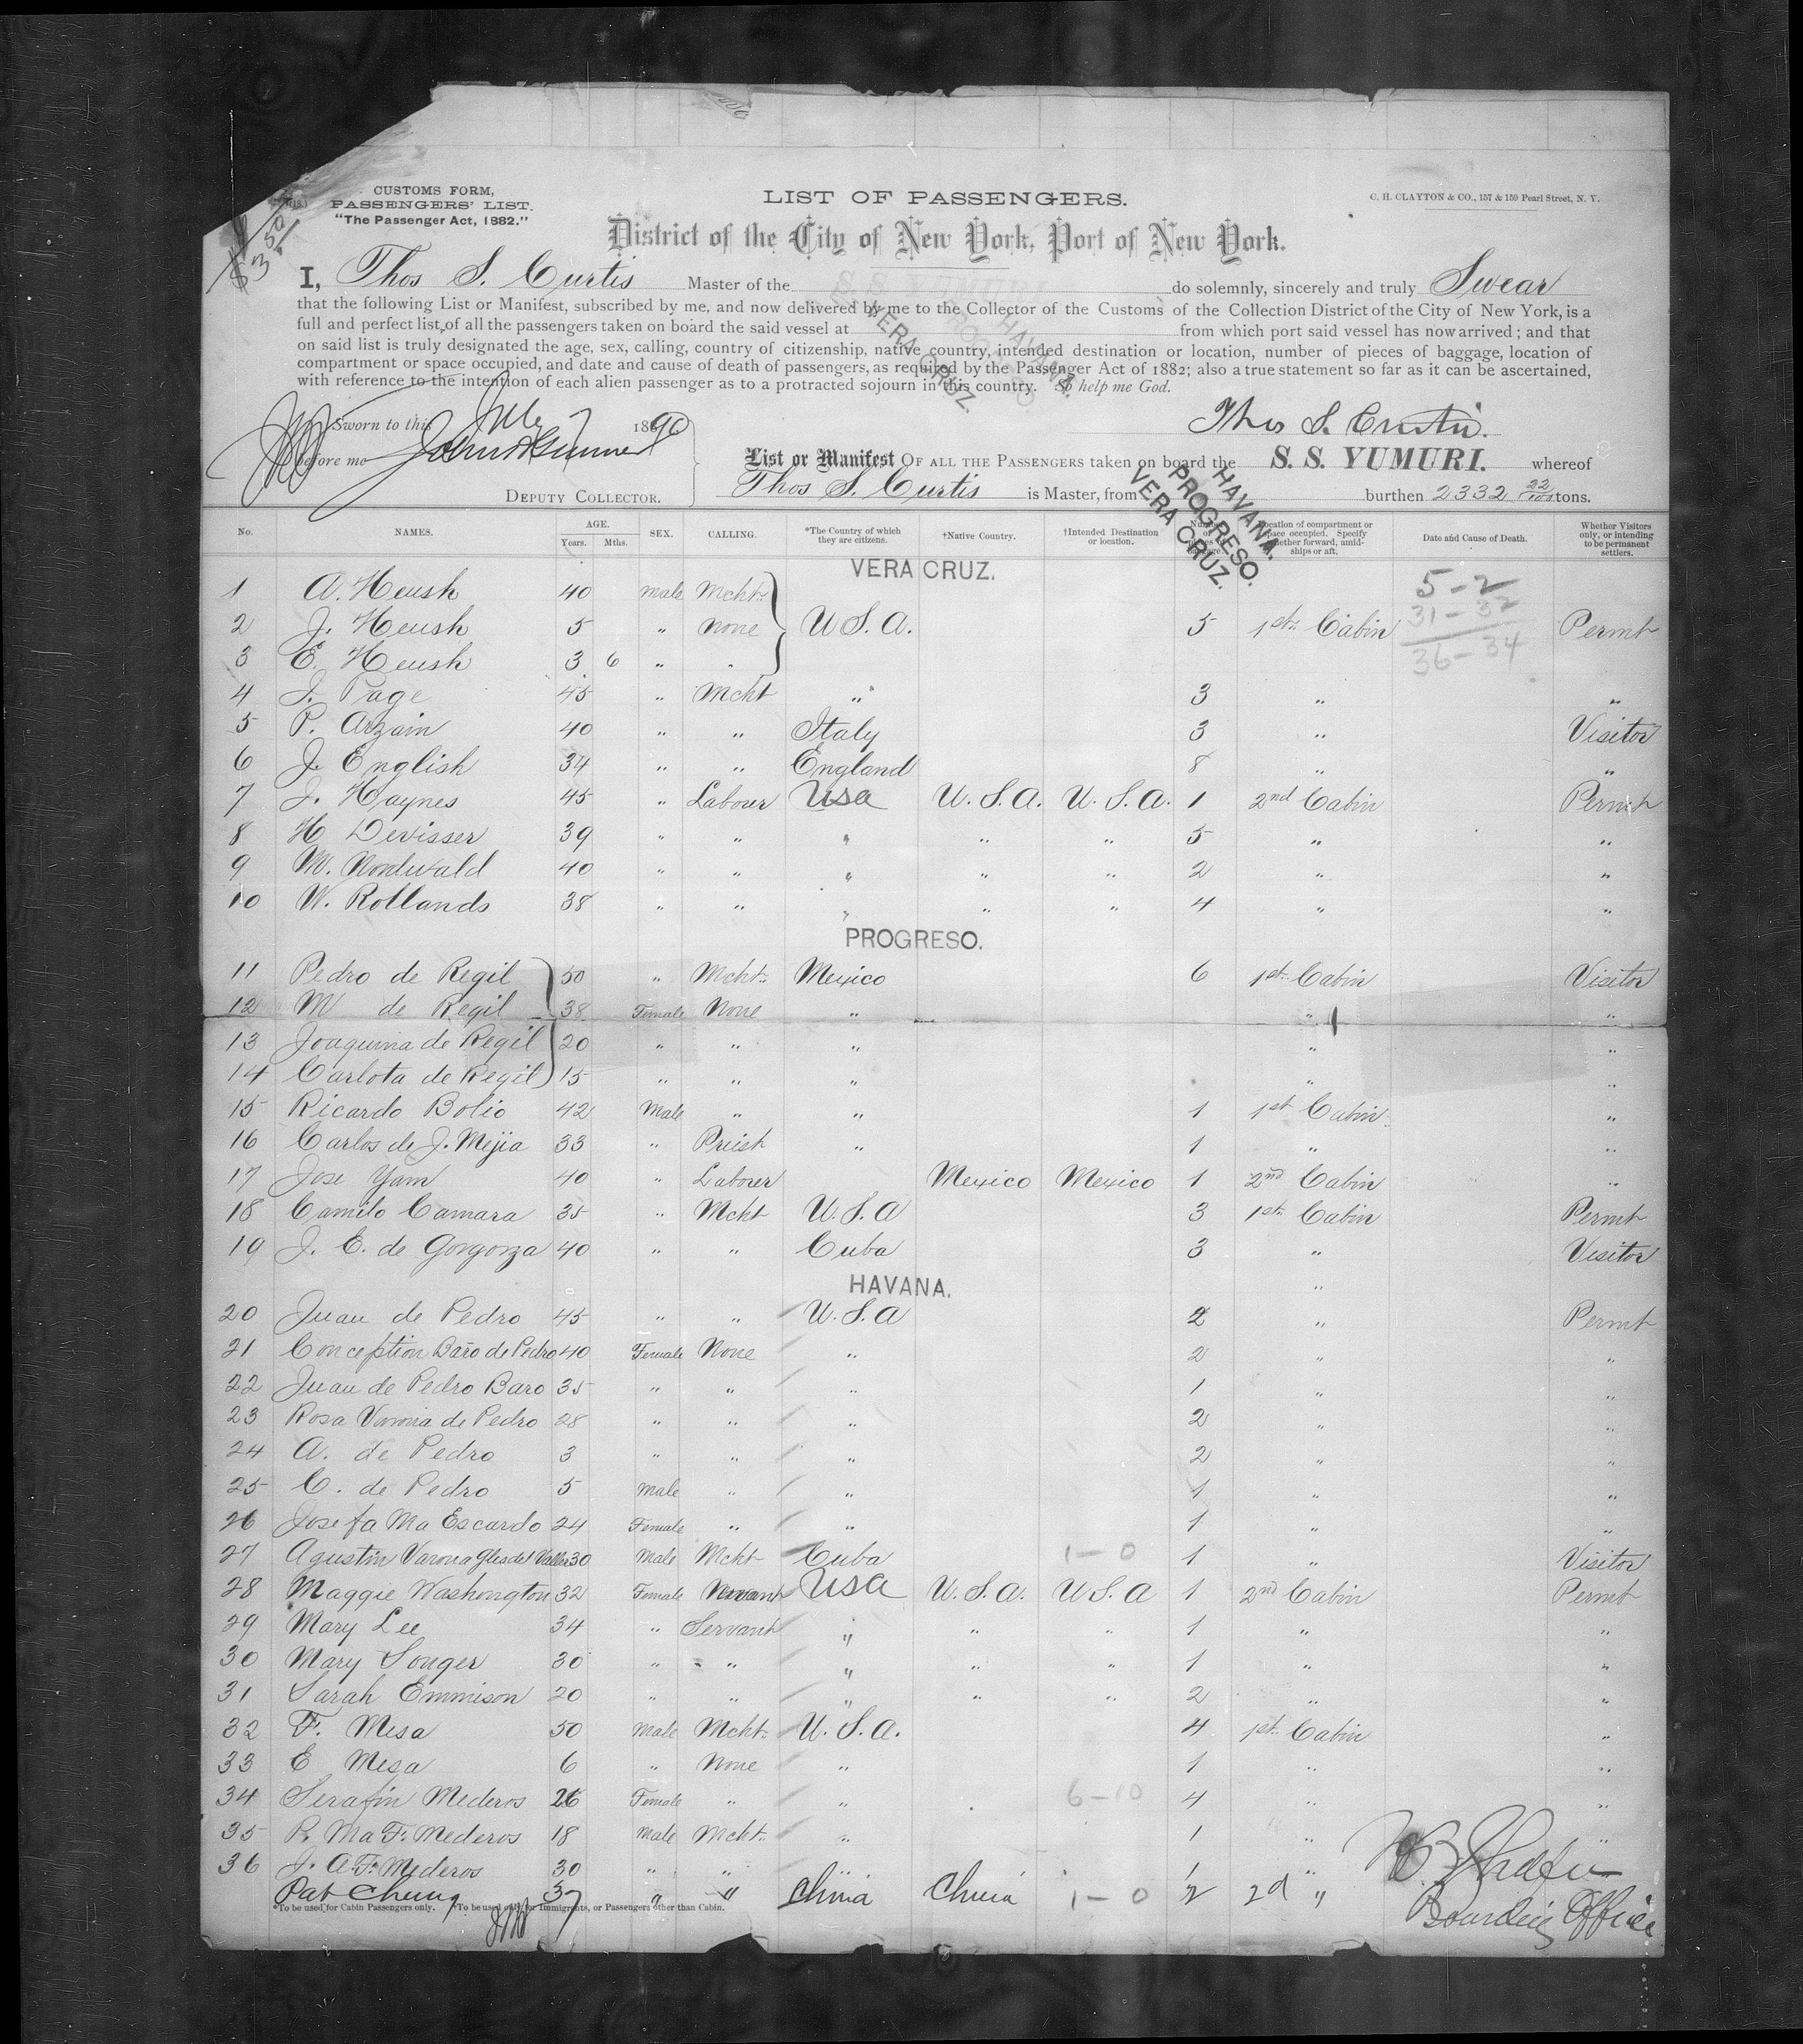 CUSTOMS FORM,
PASSENGERS' LIST.
"The Passenger Act, 1882."
LIST OF PASSENGERS.
C. H. CLAYTON & CO., 157 & 159 Pearl Street, N. Y.
District of the City of New York, Port of New York.
I, Thos S. Curtis Master of the do solemnly, sincerely and truly Swear
that the following List or Manifest, subscribed by me, and now delivered by me to the Collector of the Customs of the Collection District of the City of New York, is a
full and perfect list of all the passengers taken on board the said vessel at from which port said vessel has now arrived; and that
on said list is truly designated the age, sex, calling, country of citizenship, native country, intended destination or location, number of pieces of baggage, location of
compartment or space occupied, and date and cause of death of passengers, as required by the Passenger Act of 1882; also a true statement so far as it can be ascertained,
with reference to the intention of each alien passenger as to a protracted sojourn in this country. So help me God.
VERA CRUZ.
HAVANA.
Sworn to this July 7 1890
Thos S. Curtis.
before me
DEPUTY COLLECTOR.
List or Manifest OF ALL THE PASSENGERS taken on board the S. S. YUMURI. whereof
Thos S. Curtis is Master, from burthen 2332 22/100 tons.
HAVANA.
PROGRESO.
VERA CRUZ.
No. NAMES. AGE. Years. Mths. SEX. CALLING. *The Country of which they are citizens. †Native Country. †Intended Destination or location. Number of pieces of baggage. Location of compartment or space occupied. Specify whether forward, amidships or aft. Date and Cause of Death. Whether Visitors only, or intending to be permanent settlers.
VERA CRUZ.
5-2
31-32
36-34
1 A. Heush 40 male Mcht.
2 J. Heush 5 " none U.S.A. 5 1st Cabin Permt
3 E. Heush 3 6 " "
4 J. Page 45 " Mcht " 3 " "
5 P. Arzain 40 " " Italy 3 " Visitor
6 J. English 34 " " England 8 " "
7 J. Haynes 45 " Labour USA U.S.A. U.S.A. 1 2nd Cabin Permt
8 H Devisser 39 " " " " " 5 " "
9 M. Nordwald 40 " " " " " 2 " "
10 W. Rollands 38 " " " " " 4 " "
PROGRESO.
11 Pedro de Regil 50 " Mcht. Mexico 6 1st Cabin Visitor
12 M de Regil 38 Female None " " "
13 Joaquina de Regil 20 " " " " "
14 Carlota de Regil 15 " " " " "
15 Ricardo Bolio 42 Male " " 1 1st Cabin "
16 Carlos de J. Mejia 33 " Preist " 1 " "
17 Jose Yam 40 " Labourer Mexico Mexico 1 2nd Cabin "
18 Camilo Camara 35 " Mcht U.S.A 3 1st Cabin Permt
19 J. E. de Gorgorza 40 " " Cuba 3 " Visitor
HAVANA. "
20 Juan de Pedro 45 " " U.S.A 2 " Permt
21 Conception Baro de Pedro 40 Female None " 2 " "
22 Juan de Pedro Baro 35 " " " 1 " "
23 Rosa Varona de Pedro 28 " " " 2 " "
24 A. de Pedro 3 " " " 2 " "
25 C. de Pedro 5 male " " 1 " "
26 Josefa Ma Escardo 24 Female " " 1 " "
27 Agustin Varona Gles del Valle 30 Male Mcht Cuba 1-0 1 " Visitor
28 Maggie Washongton 32 Female Servant USA U.S.A. U.S.A 1 2nd Cabin Permt
29 Mary Lee 34 " Servant " " " 1 " "
30 Mary Souger 30 " " " " " 1 " "
31 Sarah Emmison 20 " " " " " 2 " "
32 F. Mesa 50 Male Mcht. U.S.A. 4 1st Cabin "
33 E Mesa 6 " None " 1 " "
34 Serafin Mederos 26 Female " " 6-10 4 " "
35 P. Ma F. Mederos 18 male Mcht. " 1 " "
36 J. A. F. Mederos 30 " " " 1 "
Pat Chung 37 " " China China 1-0 2 2d "
Boarding Officer
*To be used for Cabin Passengers only. †To be used only for Immigrants, or Passengers other than Cabin.